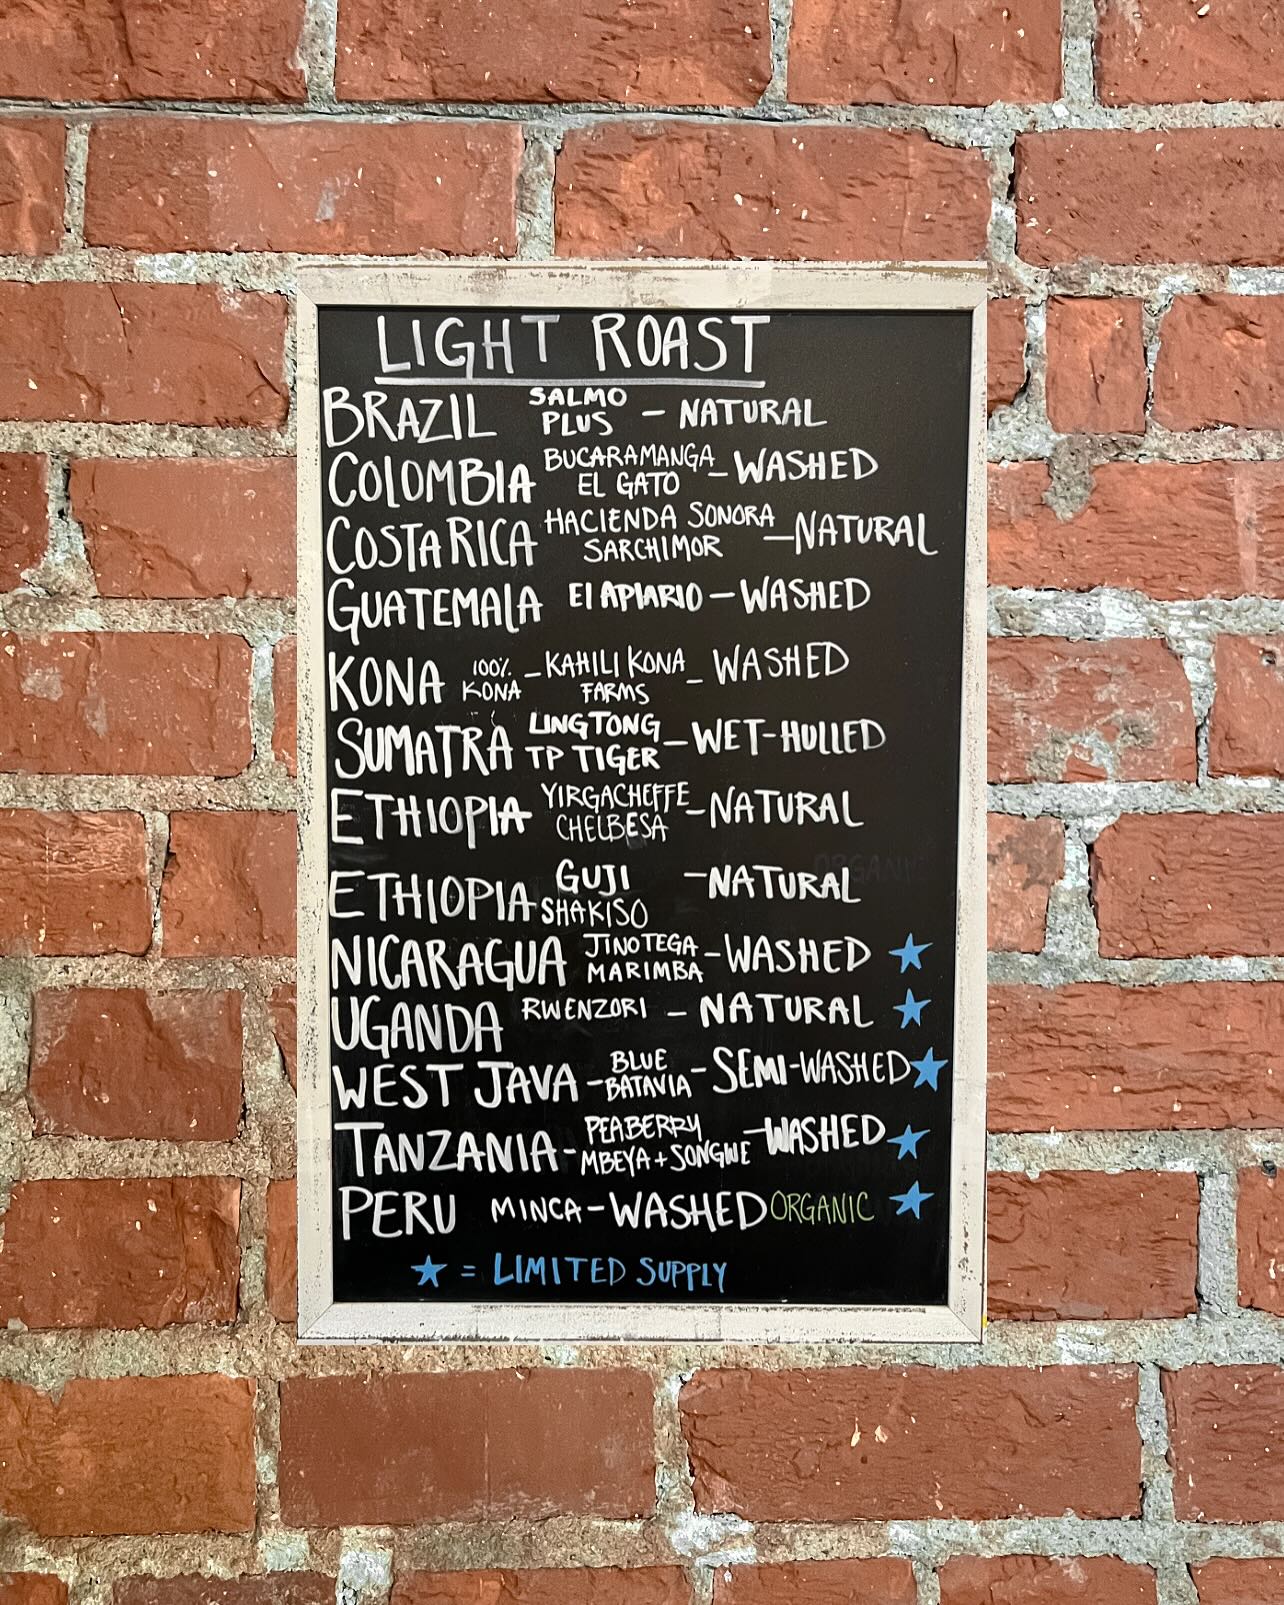 LIGHT ROAST
BRAZIL SALMO PLUS - NATURAL
COLOMBIA BUCARAMANGA EL GATO - WASHED
COSTA RICA HACIENDA SONORA SARCHIMOR - NATURAL
GUATEMALA El APIARIO - WASHED
KONA 100% KONA - KAHILI KONA FARMS - WASHED
SUMATRA LINGTONG TP TIGER - WET-HULLED
ETHIOPIA YIRGACHEFFE CHELBESA - NATURAL
ETHIOPIA GUJI SHAKISO - NATURAL
NICARAGUA JINOTEGA MARIMBA - WASHED ★
UGANDA RWENZORI - NATURAL ★
WEST JAVA - BLUE BATAVIA - SEMI-WASHED ★
TANZANIA - PEABERRY MBEYA + SONGWE - WASHED ★
PERU MINCA - WASHED ORGANIC ★
★ = LIMITED SUPPLY